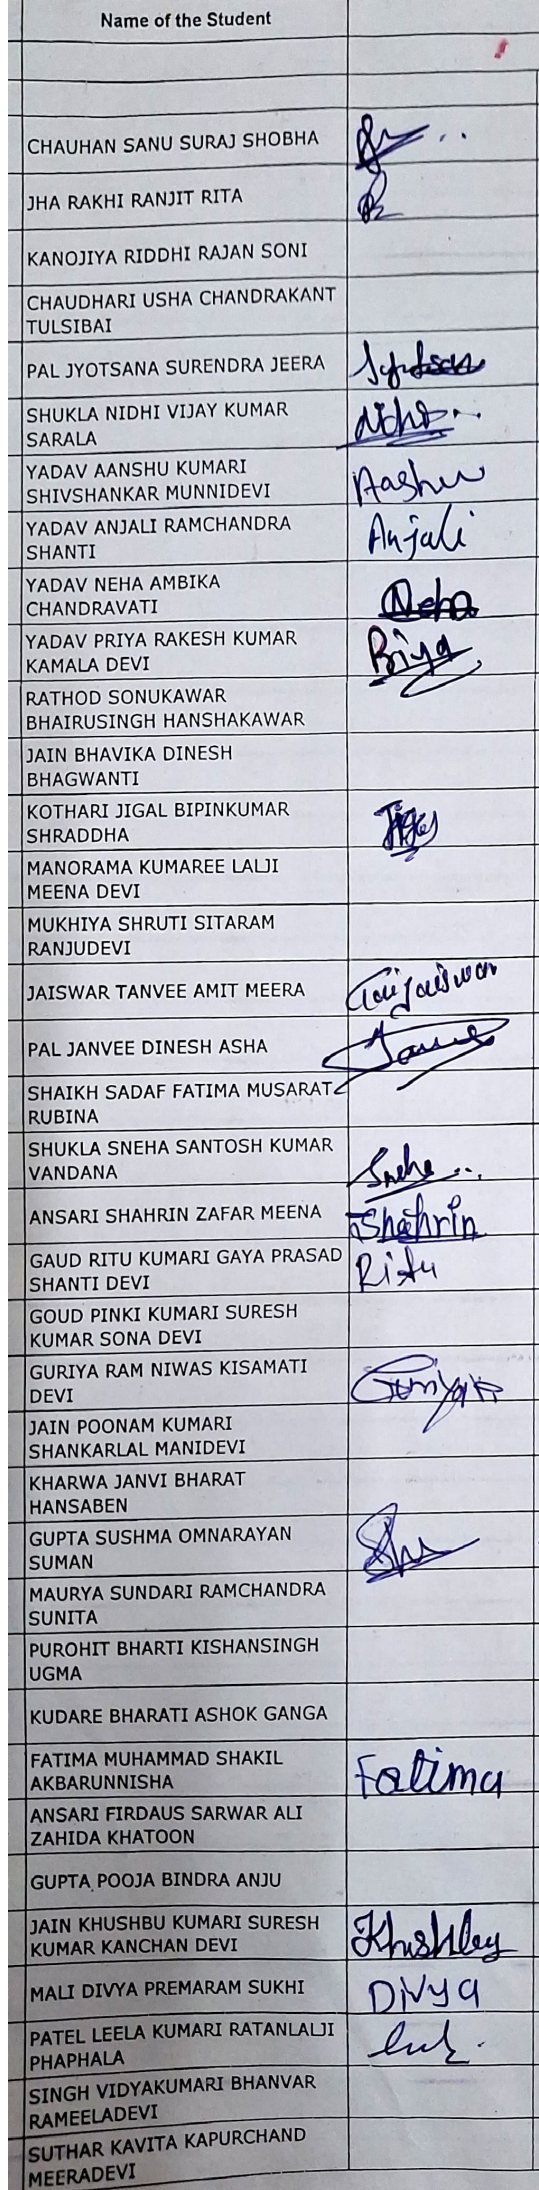 Name of the Student
CHAUHAN SANU SURAJ SHOBHA
JHA RAKHI RANJIT RITA
KANOJIYA RIDDHI RAJAN SONI
CHAUDHARI USHA CHANDRAKANT
TULSIBAI
PAL JYOTSANA SURENDRA JEERA
SHUKLA NIDHI VIJAY KUMAR
SARALA
Nidhi
YADAV AANSHU KUMARI
SHIVSHANKAR MUNNIDEVI
Aashu
YADAV ANJALI RAMCHANDRA
SHANTI
Anjali
YADAV NEHA AMBIKA
CHANDRAVATI
Neha
YADAV PRIYA RAKESH KUMAR
KAMALA DEVI
Priya
RATHOD SONUKAWAR
BHAIRUSINGH HANSHAKAWAR
JAIN BHAVIKA DINESH
BHAGWANTI
KOTHARI JIGAL BIPINKUMAR
SHRADDHA
MANORAMA KUMAREE LALJI
MEENA DEVI
MUKHIYA SHRUTI SITARAM
RANJUDEVI
JAISWAR TANVEE AMIT MEERA
PAL JANVEE DINESH ASHA
SHAIKH SADAF FATIMA MUSARAT
RUBINA
SHUKLA SNEHA SANTOSH KUMAR
VANDANA
Sneha
ANSARI SHAHRIN ZAFAR MEENA
Shahrin
GAUD RITU KUMARI GAYA PRASAD
SHANTI DEVI
Ritu
GOUD PINKI KUMARI SURESH
KUMAR SONA DEVI
GURIYA RAM NIWAS KISAMATI
DEVI
JAIN POONAM KUMARI
SHANKARLAL MANIDEVI
KHARWA JANVI BHARAT
HANSABEN
GUPTA SUSHMA OMNARAYAN
SUMAN
MAURYA SUNDARI RAMCHANDRA
SUNITA
PUROHIT BHARTI KISHANSINGH
UGMA
KUDARE BHARATI ASHOK GANGA
FATIMA MUHAMMAD SHAKIL
AKBARUNNISHA
Fatima
ANSARI FIRDAUS SARWAR ALI
ZAHIDA KHATOON
GUPTA POOJA BINDRA ANJU
JAIN KHUSHBU KUMARI SURESH
KUMAR KANCHAN DEVI
MALI DIVYA PREMARAM SUKHI
Divya
PATEL LEELA KUMARI RATANLALJI
PHAPHALA
SINGH VIDYAKUMARI BHANVAR
RAMEELADEVI
SUTHAR KAVITA KAPURCHAND
MEERADEVI